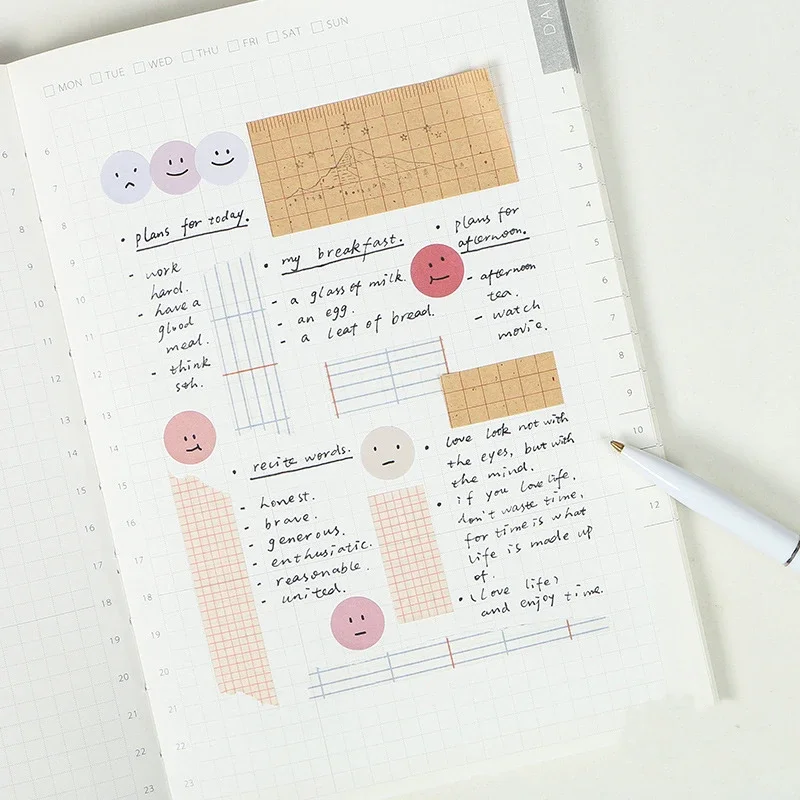 MON TUE WED THU FRI SAT SUN
DAI
• plans for today.
- work
hard.
- have a
glood
meal.
- think
sth.
• my breakfast.
- a glass of milk.
- an egg.
- a leaf of bread.
• plans for
afternoon.
- afternoon
tea.
- watch
movie.
• recite words.
- honest.
- brave.
- generous.
- enthusiatic.
- reasonable.
- united.
• love look not with
the eyes, but with
the mind.
• if you love life,
don't waste time,
for time is what
life is made up
of.
• (love life)
and enjoy time.
6
7
8
9
10
11
12
13
14
15
16
17
18
19
20
21
22
23
6
7
8
9
10
11
12
13
14
15
16
17
18
19
20
21
22
23
1
2
3
4
5
6
7
8
9
10
12